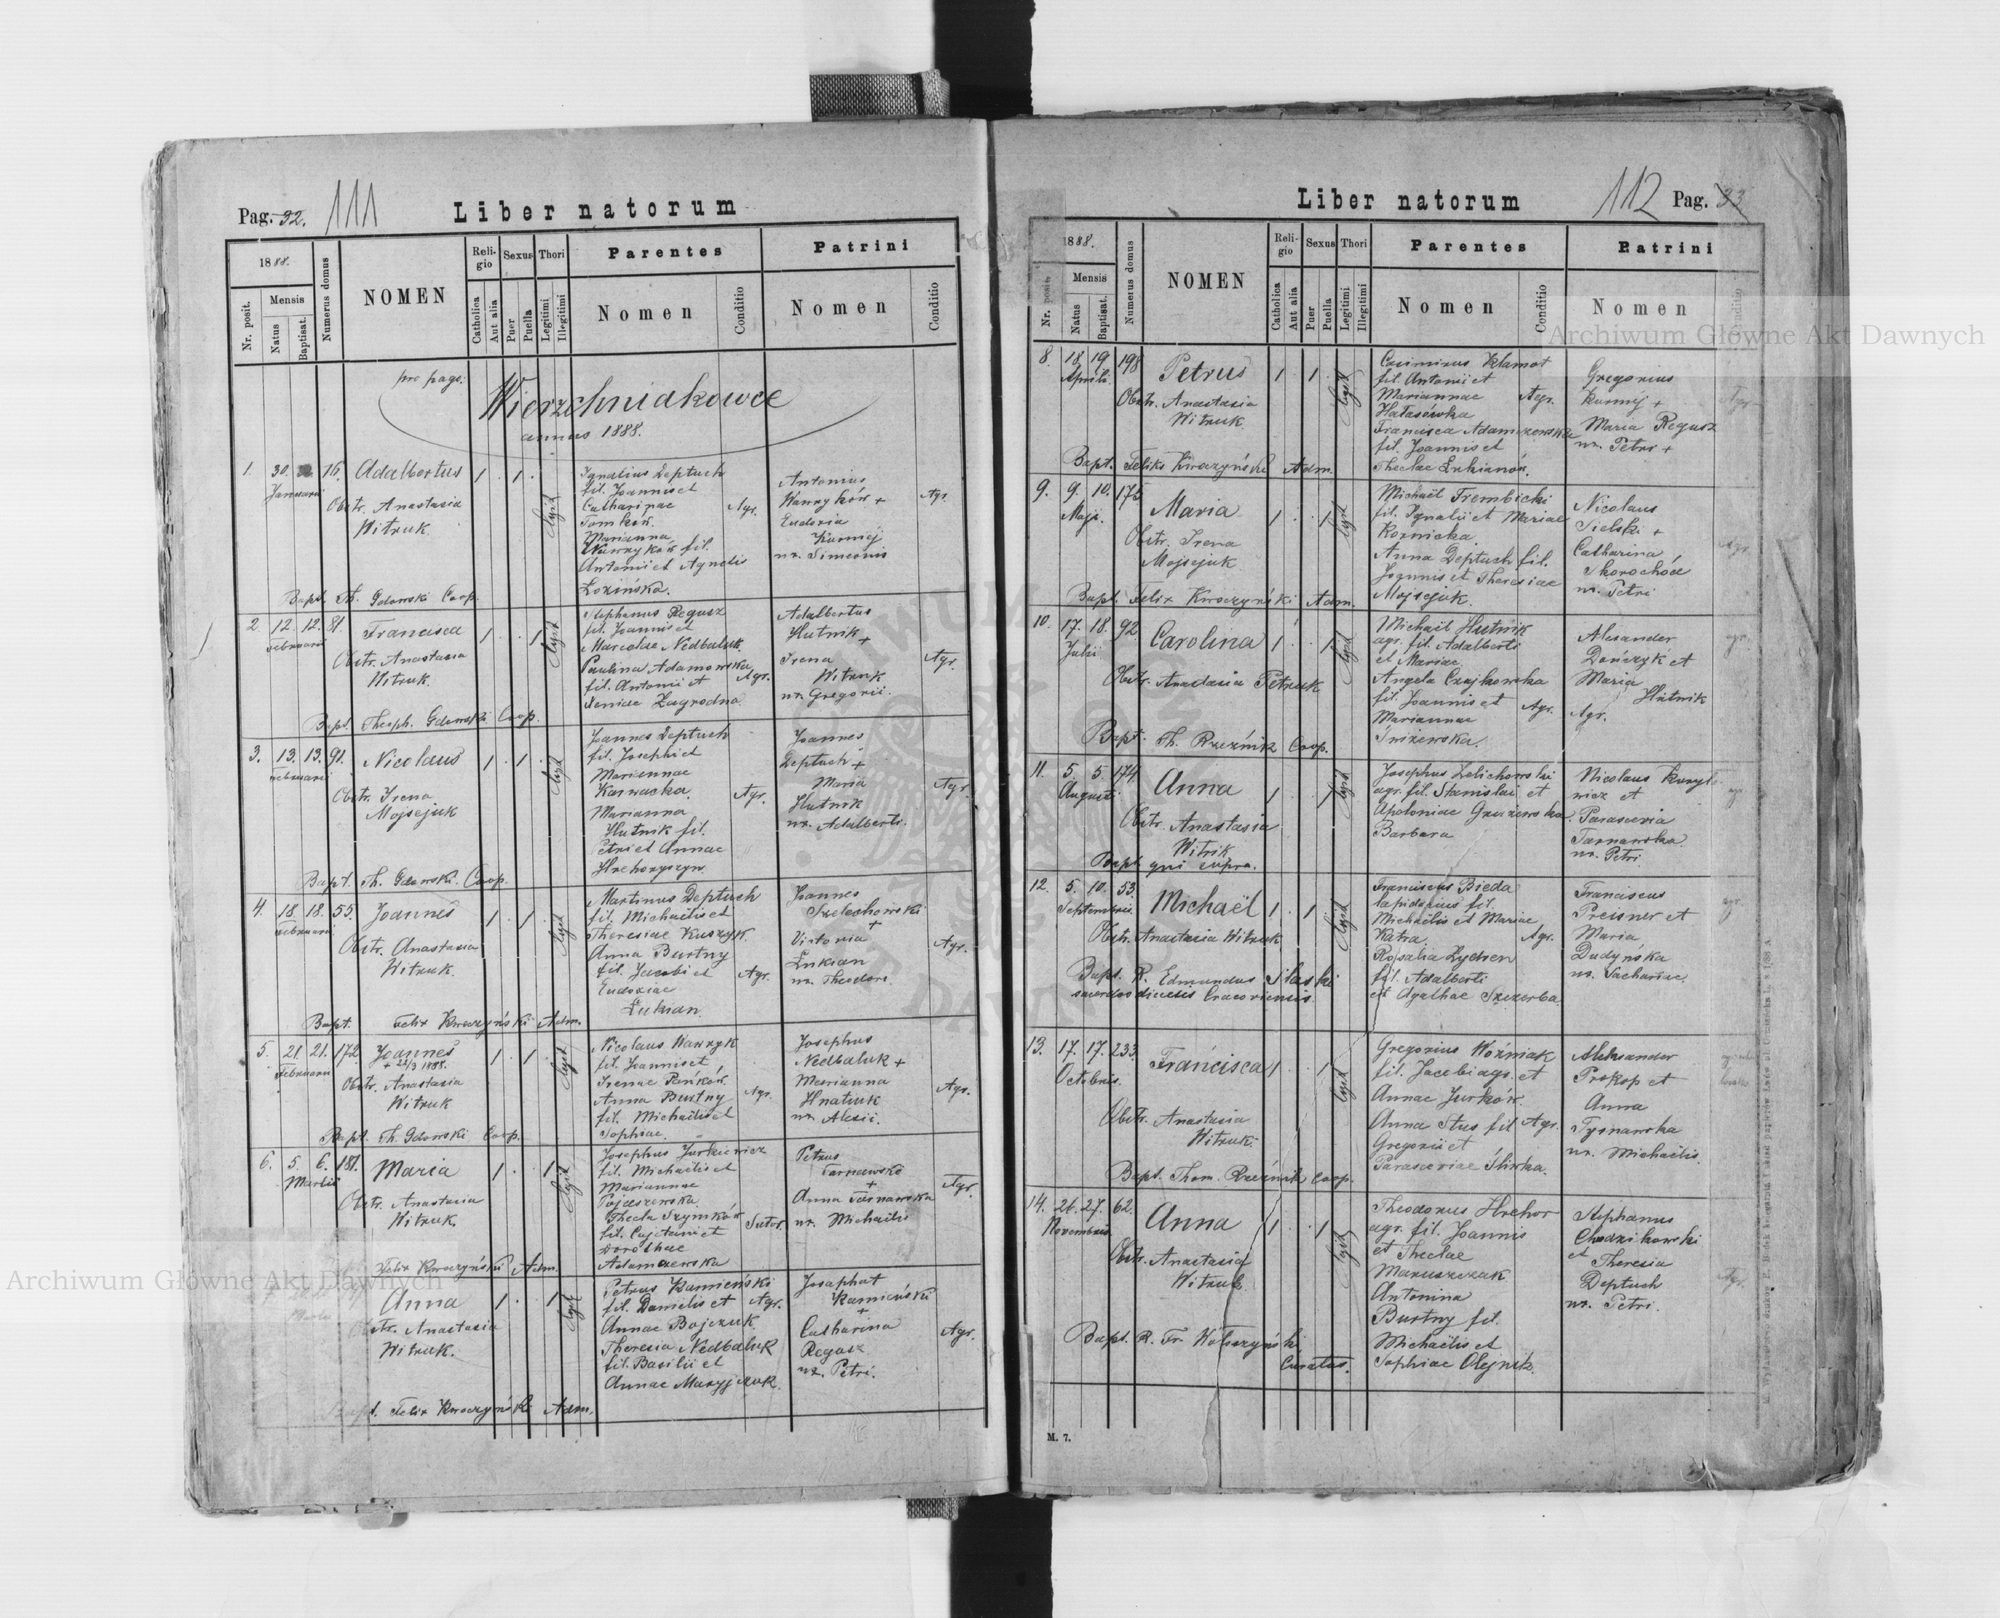 Pag. 32. 111 Liber natorum
1888.
Numerus domus
NOMEN
Religio
Sexus
Thori
Parentes
Patrini
Nr. posit.
Mensis
Natus
Baptisat.
Catholica
Aut alia
Puer
Puella
Legitimi
Illegitimi
Nomen
Conditio
Nomen
Conditio
pro pago:
Wierzchniakowce
annus 1888.
1. 30. 16. Adalbertus 1 . 1 .
Januarii
Obstr. Anastasia
Witruk.
Ignatius Deptuch
fil. Joannis et
Catharinae
Tomków.
Marianna
Wawryków fil.
Antonii et Agnetis
Łozińska.
Agr.
Antonius
Wawryków +
Eudoxia
Kurniej
ux. Simeonis
Agr.
Bapt. Th. Gdowski Coop.
2. 12. 12. 81. Francisca 1 . . 1
Februarii
Obstr. Anastasia
Witruk.
Stephanus Regusz
fil. Joannis et
Marcelae Nedbaluk
Paulina Adamowska
fil. Antonii et
Xeniae Zagrodna
Agr.
Adalbertus
Hutnik +
Irena
Witruk
ux. Gregorii.
Agr.
Bapt. Theoph. Gdowski Coop.
3. 13. 13. 91. Nicolaus 1 . 1 .
Februarii
Obstr. Irena
Mojsejuk
Joannes Deptuch
fil. Josephi et
Mariannae
Karnacka.
Marianna
Hutnik fil.
Petri et Annae
Hrehoryszyn
Agr.
Joannes
Deptuch +
Maria
Hutnik
ux. Adalberti.
Agr.
Bapt. Th. Gdowski. Coop.
4. 18. 18. 55. Joannes 1 . 1 .
Februarii
Obstr. Anastasia
Witruk.
Martinus Deptuch
fil. Michaëlis et
Theresiae Kuszyk.
Anna Burtny
fil. Jacobi et
Eudoxiae
Łukian.
Agr.
Joannes
Szelechowski
+
Victoria
Łukian
ux. Theodori.
Agr.
Bapt. Felix Kwoczyński Adm.
5. 21. 21. 172 Joannes 1 . 1 .
Februarii
Obstr. Anastasia
Witruk
Nicolaus Wawryk
fil. Joannis et
Irenae Pańków.
Anna Burtny
fil. Michaëlis et
Sophiae.
Agr.
Josephus
Nedbaluk +
Marianna
Hnatiuk
ux. Alexii.
Agr.
Bapt. Th. Gdowski Coop.
6. 5. 6. 181. Maria 1 . . 1
Martii
Obstr. Anastasia
Witruk.
Josephus Jurkiewicz
fil. Michaëlis et
Mariannae
Thecla Szymków
fil. Cajetani et
Dorothae
Adamczewska
Sutor.
Petrus
Tarnawski
+
Anna Tarnawska
ux. Michaëlis
Agr.
Felix Kwoczyński Adm.
Anna 1 . . 1
Obstr. Anastasia
Witruk.
Petrus Kamieński
fil. Danielis et
Annae Bojczuk.
Theresia Nedbaluk
fil. Basilii et
Annae Maryjczuk.
Agr.
Josaphat
Kamieński
+
Catharina
Regusz
ux. Petri.
Agr.
Bapt. Felix Kwoczyński Adm.
Liber natorum 112 Pag. 33
1888.
Numerus domus
NOMEN
Religio
Sexus
Thori
Parentes
Patrini
Nr. posit.
Mensis
Natus
Baptisat.
Catholica
Aut alia
Puer
Puella
Legitimi
Illegitimi
Nomen
Conditio
Nomen
Conditio
8. 18. 19. 198 Petrus 1 . 1 .
Aprili.
Obstr. Anastasia
Witruk.
Casimirus Klamot
fil. Antonii et
Mariannae
Hałasówka
Francisca Adamczewska
fil. Joannis et
Theclae Łukianów.
Agr.
Gregorius
Kurniej +
Maria Regusz
ux. Petri +
Agr.
Bapt. Feliks Kwoczyński Adm.
9. 9. 10. 175 Maria 1 . . 1
Maji.
Obstr. Irena
Mojsejuk
Michaël Trembicki
fil. Ignatii et Mariae
Koznicka.
Anna Deptuch fil.
Joannis et Theresiae
Mojsejuk.
Nicolaus
Sielski +
Catharina
Skorochód
ux. Petri
Agr.
Bapt. Felix Kwoczyński Adm.
10. 17. 18. 92. Carolina 1 . . 1
Julii
Obstr. Anastasia Petruk
Michaël Hutnik
agr. fil. Adalberti
et Mariae.
Angela Czajkowska
fil. Joannis et
Mariannae
Agr.
Alexander
Dończyk et
Maria
Hutnik
Agr.
Bapt. Th. Rzeźnik Coop.
11. 5. 5. 174. Anna 1 . . 1
Augusti
Obstr. Anastasia
Witrik
Josephus Zelichowski
agr. fil. Stanislai et
Apoloniae
Barbara
Nicolaus
et
Parascevia
Tarnawska
ux. Petri.
Bapt. qui supra.
12. 5. 10. 53. Michaël 1 . 1 .
Septembris.
Obstr. Anastasia Witruk
Franciscus Bieda
lapidarius fil.
Michaëlis et Mariae
Katra.
Rosalia Zychen
fil. Adalberti
et Agathae Szczerba
Agr.
Franciscus
Preisner et
Maria
Dudyńska
ux. Zachariae.
Bapt. R. Edmundus
sacerdos diecesis Cracoviensis.
13. 17. 17. 233. Francisca 1 . . 1
Octobris.
Obstr. Anastasia
Witruk.
Gregorius Woźniak
fil. Jacobi agr. et
Annae Jurków.
Anna Stus fil
Gregorii et
Parasceviae Śliwka.
Agr.
Aleksander
Prokop et
Anna
Tyrnawska
ux. Michaëlis.
Bapt. Thom. Rzeźnik Coop.
14. 26. 27. 62. Anna 1 . . 1
Novembris.
Obstr. Anastasia
Witruk
Theodorus Hrehor
agr. fil. Joannis
et Theclae
Maruszczak
Antonina
Burtny fil.
Michaëlis et
Sophiae Olejnik.
Stephanus
Chodzikowski
et
Theresia
Deptuch
ux. Petri.
Agr.
Bapt. R. Fr. Wołoszyński
Curatus.
M. 7.
Archiwum Główne Akt Dawnych
Archiwum Główne Akt Dawnych